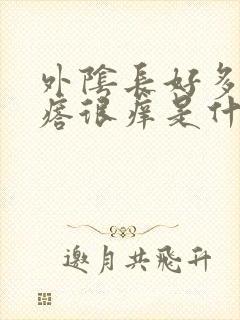 外陰長好多
痞很痒是什
邀月共飛升